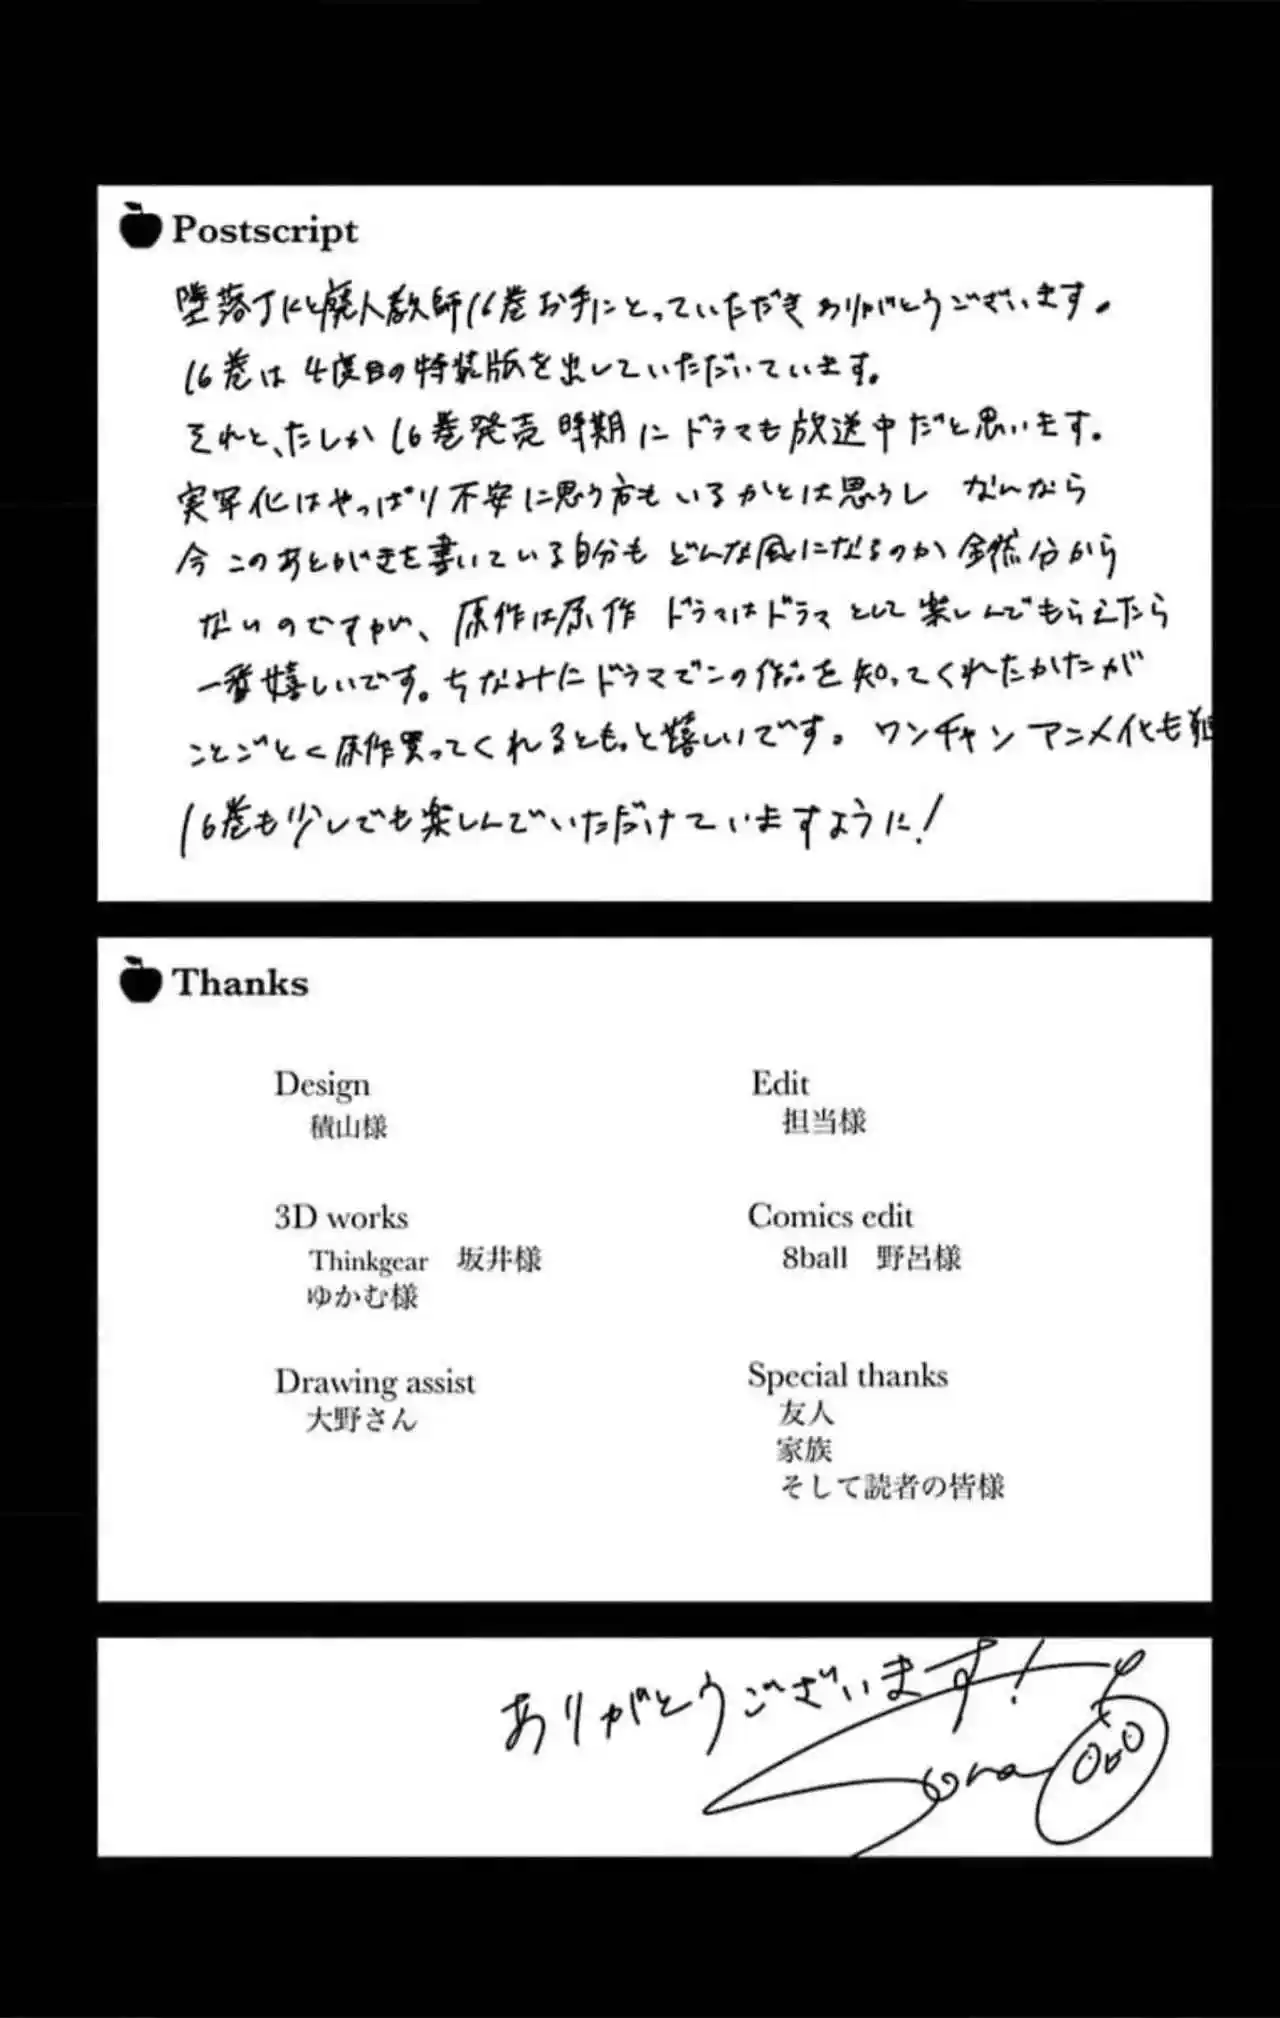 Postscript
堕落JKと廃人教師16巻お手にとっていただきありがとうございます。
16巻は4度目の特装版を出していただいています。
それと、たしか16巻発売時期にドラマも放送中だと思います。
実写化はやっぱり不安に思う方もいるかとは思うし なんなら
今このあとがきを書いている自分も どんな風になるのか全然分から
ないのですが、原作は原作 ドラマはドラマとして楽しんでもらえたら
一番嬉しいです。ちなみにドラマでこの作品を知ってくれたかたが
ことごとく原作買ってくれるともっと嬉しいです。ワンチャンアニメ化も
16巻も少しでも楽しんでいただけていますように!
Thanks
Design
積山様
3D works
Thinkgear 坂井様
ゆかむ様
Drawing assist
大野さん
Edit
担当様
Comics edit
8ball 野呂様
Special thanks
友人
家族
そして読者の皆様
ありがとうございます!
Sora